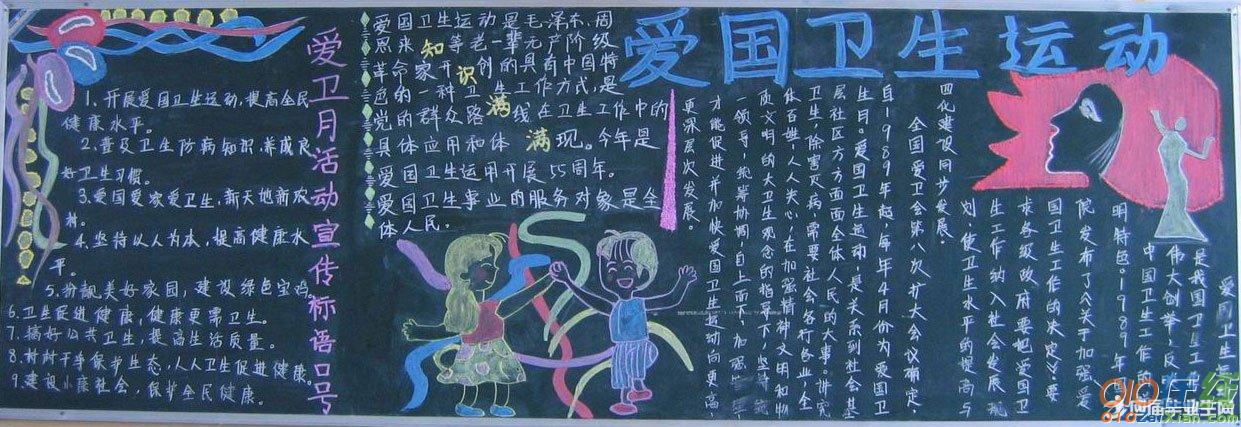 爱国卫生运动
爱卫月活动宣传标语口号
1、开展爱国卫生运动,提高全民
健康水平。
2、普及卫生防病知识,养成良
好卫生习惯。
3、爱国爱家爱卫生,新天地新农
村。
4、坚持以人为本,提高健康水
平。
5、扮靓美好家园,建设绿色宝鸡。
6、卫生促进健康,健康更需卫生。
7、搞好公共卫生,提高生活质量。
8、村村干净保护生态,人人卫生促进健康。
9、建设小康社会,保护全民健康。
知识满满
爱国卫生运动是毛泽东、周
恩来等老一辈无产阶级
革命家开创的具有中国特
色的一种卫生工作方式,是
党的群众路线在卫生工作中的
具体应用和体现。今年是
爱国卫生运用开展55周年。
爱国卫生事业的服务对象是全
体人民。
爱国卫生运动
是我国卫生工
伟大创举,反
中国卫生工作的
明特色。1989年国
院发布了《关于加强爱
国卫生工作的决定》要
求各级政府要把爱国卫
生工作纳入社会发展规
划,使卫生水平的提高与
四化建设同步发展。
全国爱卫会第八次扩大会议确定,
自1989年起,每年4月份为爱国卫
生月。爱国卫生运动,是关系到社会基
层社区方方面面全体人民的大事。讲究
卫生,除害灭病,需要社会各行各业,全
体百姓人人关心,在加强精神文明和物
质文明的大卫生观念的指导下,坚持
一领导,统筹协调,自上而下,加强
才能促进并加快爱国卫生运动向更高,
更深层次发展。